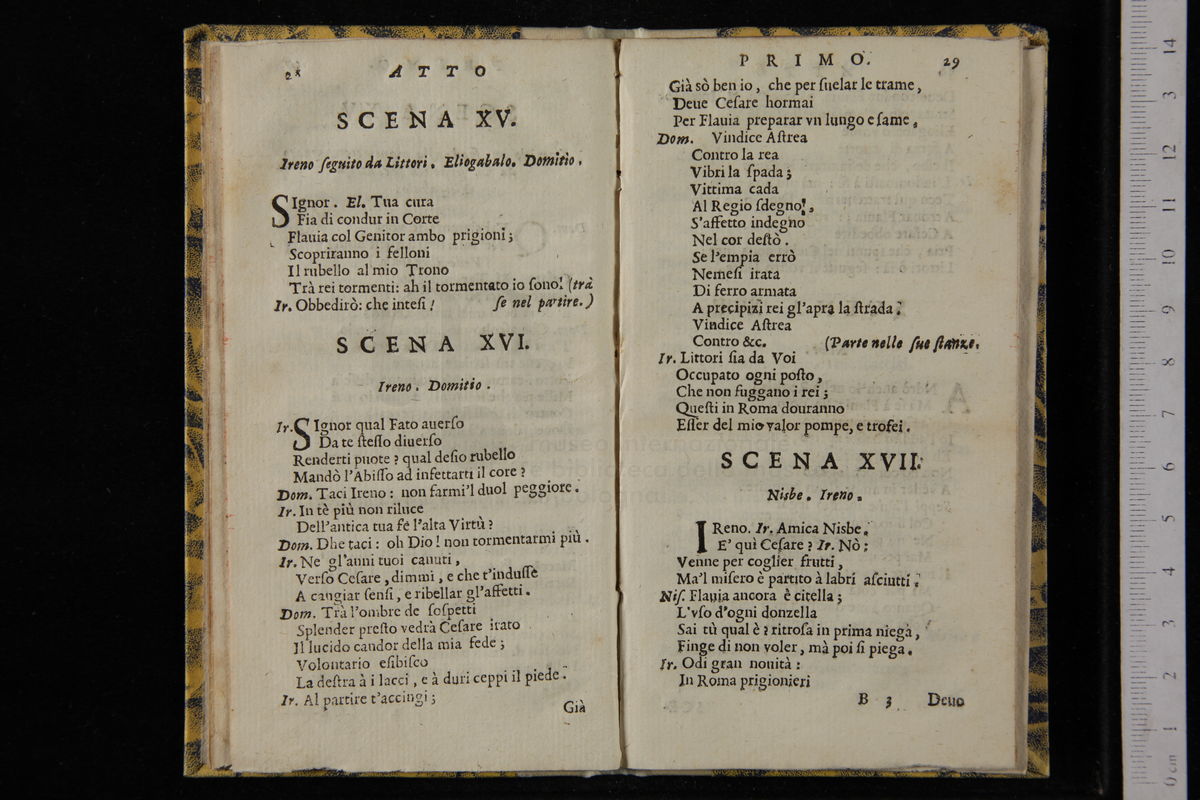 28 ATTO
SCENA XV.
Ireno ſeguito da Littori. Eliogabalo. Domitio.
SIgnor. El. Tua cura
Fia di condur in Corte
Flauia col Genitor ambo prigioni;
Scopriranno i felloni
Il rubello al mio Trono
Trà rei tormenti: ah il tormentato io ſono! (trà
Ir. Obbedirò: che inteſi! ſe nel partire.)
SCENA XVI.
Ireno. Domitio.
Ir. SIgnor qual Fato auerſo
Da te ſteſſo diuerſo
Renderti puote? qual deſio rubello
Mandò l'Abiſſo ad infettarti il core?
Dom. Taci Ireno: non farmi'l duol peggiore.
Ir. In tè più non riluce
Dell'antica tua fè l'alta Virtù?
Dom. Dhe taci: oh Dio! non tormentarmi più.
Ir. Ne gl'anni tuoi canuti,
Verſo Ceſare, dimmi, e che t'induſſe
A cangiar ſenſi, e ribellar gl'affetti.
Dom. Trà l'ombre de ſoſpetti
Splender preſto vedrà Ceſare irato
Il lucido candor della mia fede;
Volontario eſibiſco
La deſtra à i lacci, e à duri ceppi il piede.
Ir. Al partire t'accingi;
Già
PRIMO. 29
Già sò ben io, che per ſuelar le trame,
Deue Ceſare hormai
Per Flauia preparar vn lungo eſame.
Dom. Vindice Aſtrea
Contro la rea
Vibri la ſpada;
Vittima cada
Al Regio ſdegno!
S'affetto indegno
Nel cor deſtò.
Se l'empia errò
Nemeſi irata
Di ferro armata
A precipizi rei gl'apra la ſtrada.
Vindice Aſtrea
Contro &c. (Parte nelle ſue ſtanze.
Ir. Littori ſia da Voi
Occupato ogni poſto,
Che non fuggano i rei;
Queſti in Roma douranno
Eſſer del mio valor pompe, e trofei.
SCENA XVII.
Nisbe. Ireno.
IReno. Ir. Amica Nisbe.
E' quì Ceſare? Ir. Nò:
Venne per coglier frutti,
Ma'l miſero è partito à labri aſciutti.
Niſ. Flauia ancora è citella;
L'vſo d'ogni donzella
Sai tù qual è? ritroſa in prima niega,
Finge di non voler, mà poi ſi piega.
Ir. Odi gran nouità:
In Roma prigionieri
B 3 Deuo